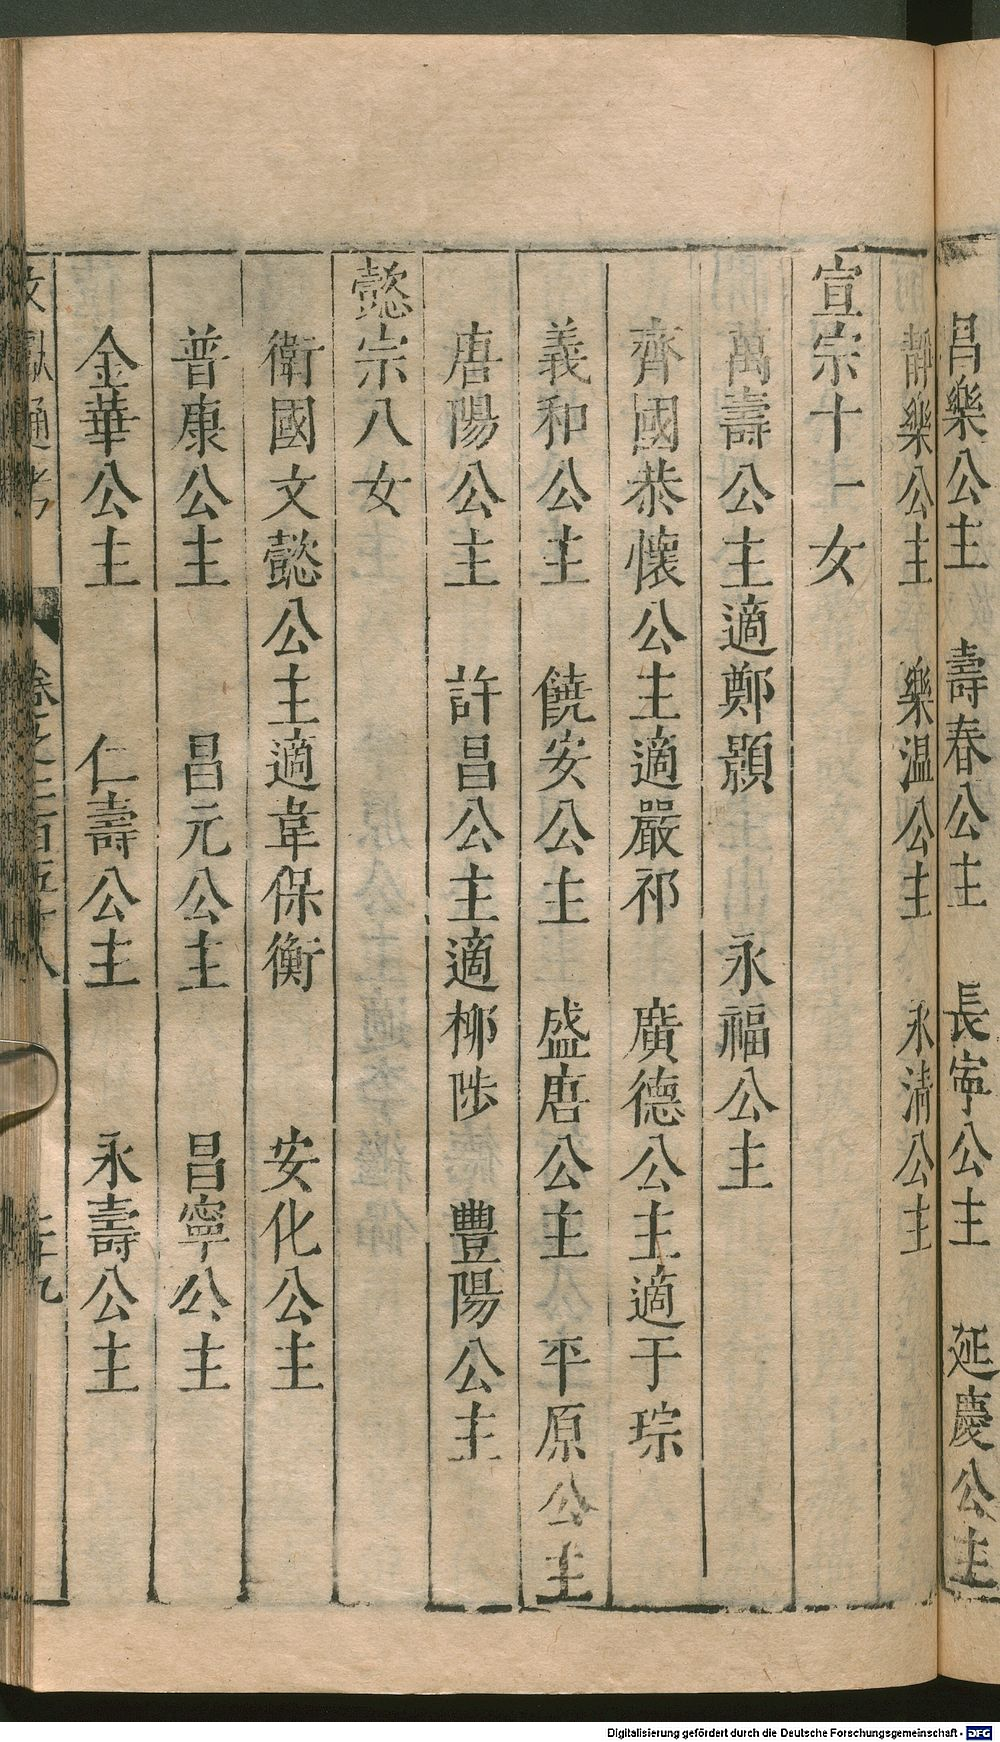 昌樂公主 壽春公主 長寧公主 延慶公主
靜樂公主 樂温公主 永淸公主
宣宗十一女
萬壽公主適鄭顥 永福公主
齊國恭懷公主適嚴祁 廣德公主適于琮
義和公主 饒安公主 盛唐公主 平原公主
唐陽公主 許昌公主適柳陟 豐陽公主
懿宗八女
衛國文懿公主適韋保衡 安化公主
普康公主 昌元公主 昌寧公主
金華公主 仁壽公主 永壽公主
文獻通考 卷之二百五十八
Digitalisierung gefördert durch die Deutsche Forschungsgemeinschaft - DFG